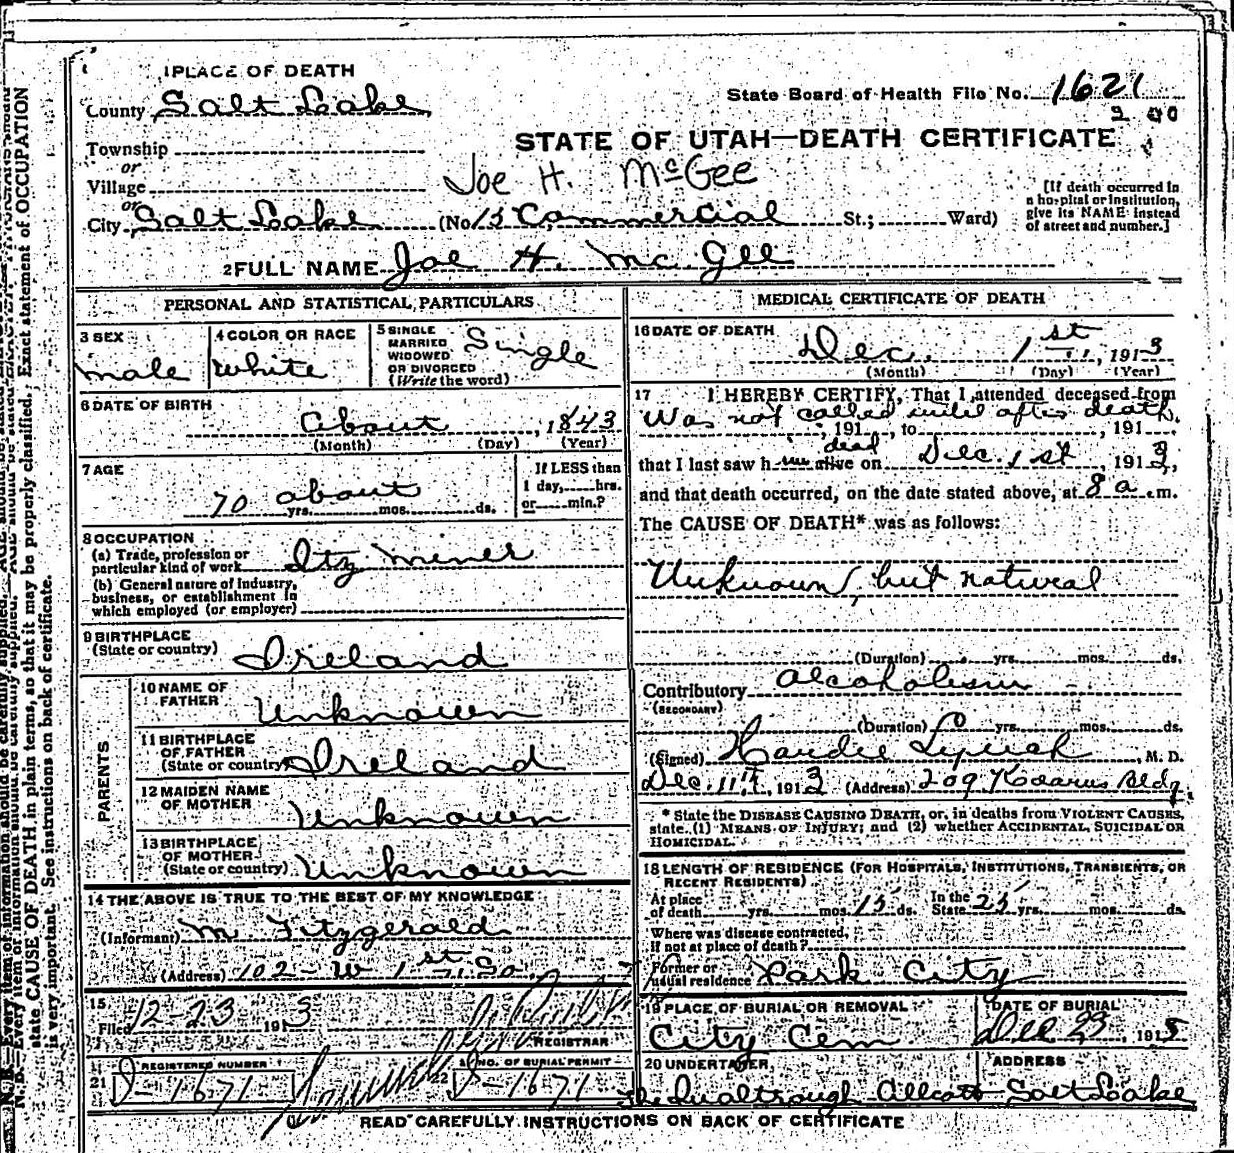 1 PLACE OF DEATH
County Salt Lake
State Board of Health File No. 1621
2 00
STATE OF UTAH—DEATH CERTIFICATE
Township
or
Village
Joe H. McGee
or
City Salt Lake (No 15 Commercial St.; Ward)
[If death occurred in a hospital or institution, give its NAME instead of street and number.]
2 FULL NAME Joe H. Mc Gee
PERSONAL AND STATISTICAL PARTICULARS
3 SEX
male
4 COLOR OR RACE
White
5 SINGLE MARRIED WIDOWED OR DIVORCED (Write the word)
Single
6 DATE OF BIRTH
About , 1843
(Month) (Day) (Year)
7 AGE
70 about
yrs. mos. ds.
If LESS than 1 day, hrs. or min.?
8 OCCUPATION
(a) Trade, profession or particular kind of work Qtz Miner
(b) General nature of industry, business, or establishment in which employed (or employer)
9 BIRTHPLACE
(State or country) Ireland
PARENTS
10 NAME OF FATHER Unknown
11 BIRTHPLACE OF FATHER (State or country) Ireland
12 MAIDEN NAME OF MOTHER Unknown
13 BIRTHPLACE OF MOTHER (State or country) Unknown
14 THE ABOVE IS TRUE TO THE BEST OF MY KNOWLEDGE
(Informant) M. Fitzgerald
(Address) 102 - W 1st So
15
Filed 12-23 1913
REGISTRAR
REGISTERED NUMBER
21 D-1671
NO. OF BURIAL PERMIT
22 D-1671
MEDICAL CERTIFICATE OF DEATH
16 DATE OF DEATH
Dec. 1st, 1913
(Month) (Day) (Year)
17 I HEREBY CERTIFY, That I attended deceased from
Was not called until after death.
, 191 , to , 191
dead
that I last saw him alive on Dec. 1st, 1913,
and that death occurred, on the date stated above, at 8 a.m.
The CAUSE OF DEATH* was as follows:
Unknown, but natural
(Duration) yrs. mos. ds.
Contributory Alcoholism
(SECONDARY)
(Duration) yrs. mos. ds.
(Signed) , M. D.
Dec. 11th, 1913 (Address) 209 Bldg.
* State the DISEASE CAUSING DEATH, or, in deaths from VIOLENT CAUSES, state (1) MEANS OF INJURY; and (2) whether ACCIDENTAL, SUICIDAL OR HOMICIDAL.
18 LENGTH OF RESIDENCE (FOR HOSPITALS, INSTITUTIONS, TRANSIENTS, OR RECENT RESIDENTS)
At place of death yrs. mos. 15 ds. In the State 25 yrs. mos. ds.
Where was disease contracted, if not at place of death?
Former or usual residence Park City
19 PLACE OF BURIAL OR REMOVAL
City Cem
DATE OF BURIAL
Dec 23, 1913
20 UNDERTAKER
ADDRESS
Salt Lake
READ CAREFULLY INSTRUCTIONS ON BACK OF CERTIFICATE
CAUSE OF DEATH in plain terms, so that it may be properly classified. Exact statement of OCCUPATION
is very important. See instructions on back of certificate.